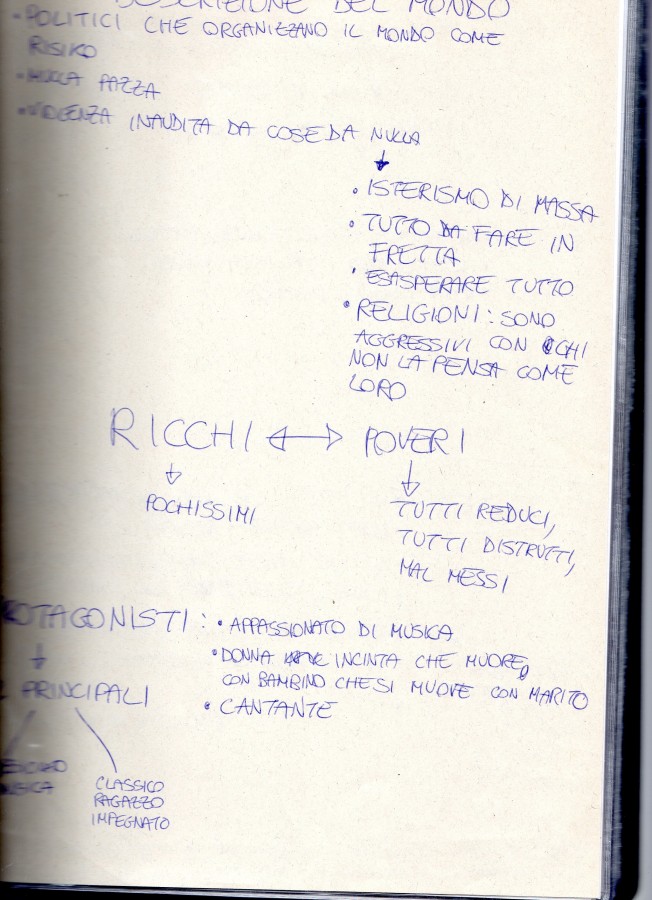 DESCRIZIONE DEL MONDO
• POLITICI CHE ORGANIZZANO IL MONDO COME
RISIKO
• MUCCA PAZZA
• VIOLENZA INAUDITA DA COSE DA NULLA
↓
• ISTERISMO DI MASSA
• TUTTO DA FARE IN
FRETTA
• ESASPERARE TUTTO
• RELIGIONI: SONO
AGGRESSIVI CON CHI
NON LA PENSA COME
LORO
RICCHI ↔ POVERI
↓ ↓
POCHISSIMI
TUTTI REDUCI,
TUTTI DISTRUTTI,
MAL MESSI
ROTAGONISTI: • APPASSIONATO DI MUSICA
• DONNA INCINTA CHE MUORE,
CON BAMBINO CHE SI MUOVE CON MARITO
• CANTANTE
↓
PRINCIPALI
CLASSICO
RAGAZZO
IMPEGNATO